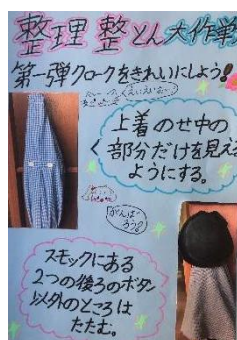 整理整とん大作戦
第一弾クロークをきれいにしよう!
えいえいおー!
上着のせ中の
部分だけを見える
ようにする。
がんばろう!
スモックにある
2つの後ろのボタン
以外のところは
たたむ。